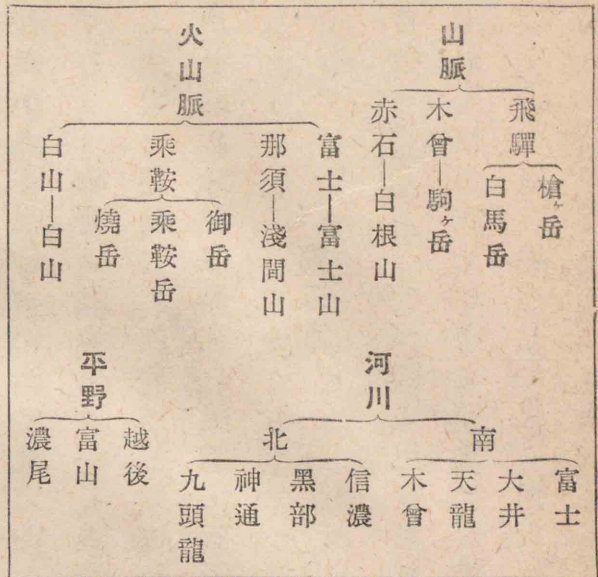 山脈
飛驒
槍ヶ岳
白馬岳
木曾—駒ヶ岳
赤石—白根山
火山脈
富士—富士山
那須—淺間山
乘鞍
御岳
乘鞍岳
燒岳
白山—白山
河川
南
富士
大井
天龍
木曾
北
信濃
黑部
神通
九頭龍
平野
越後
富山
濃尾